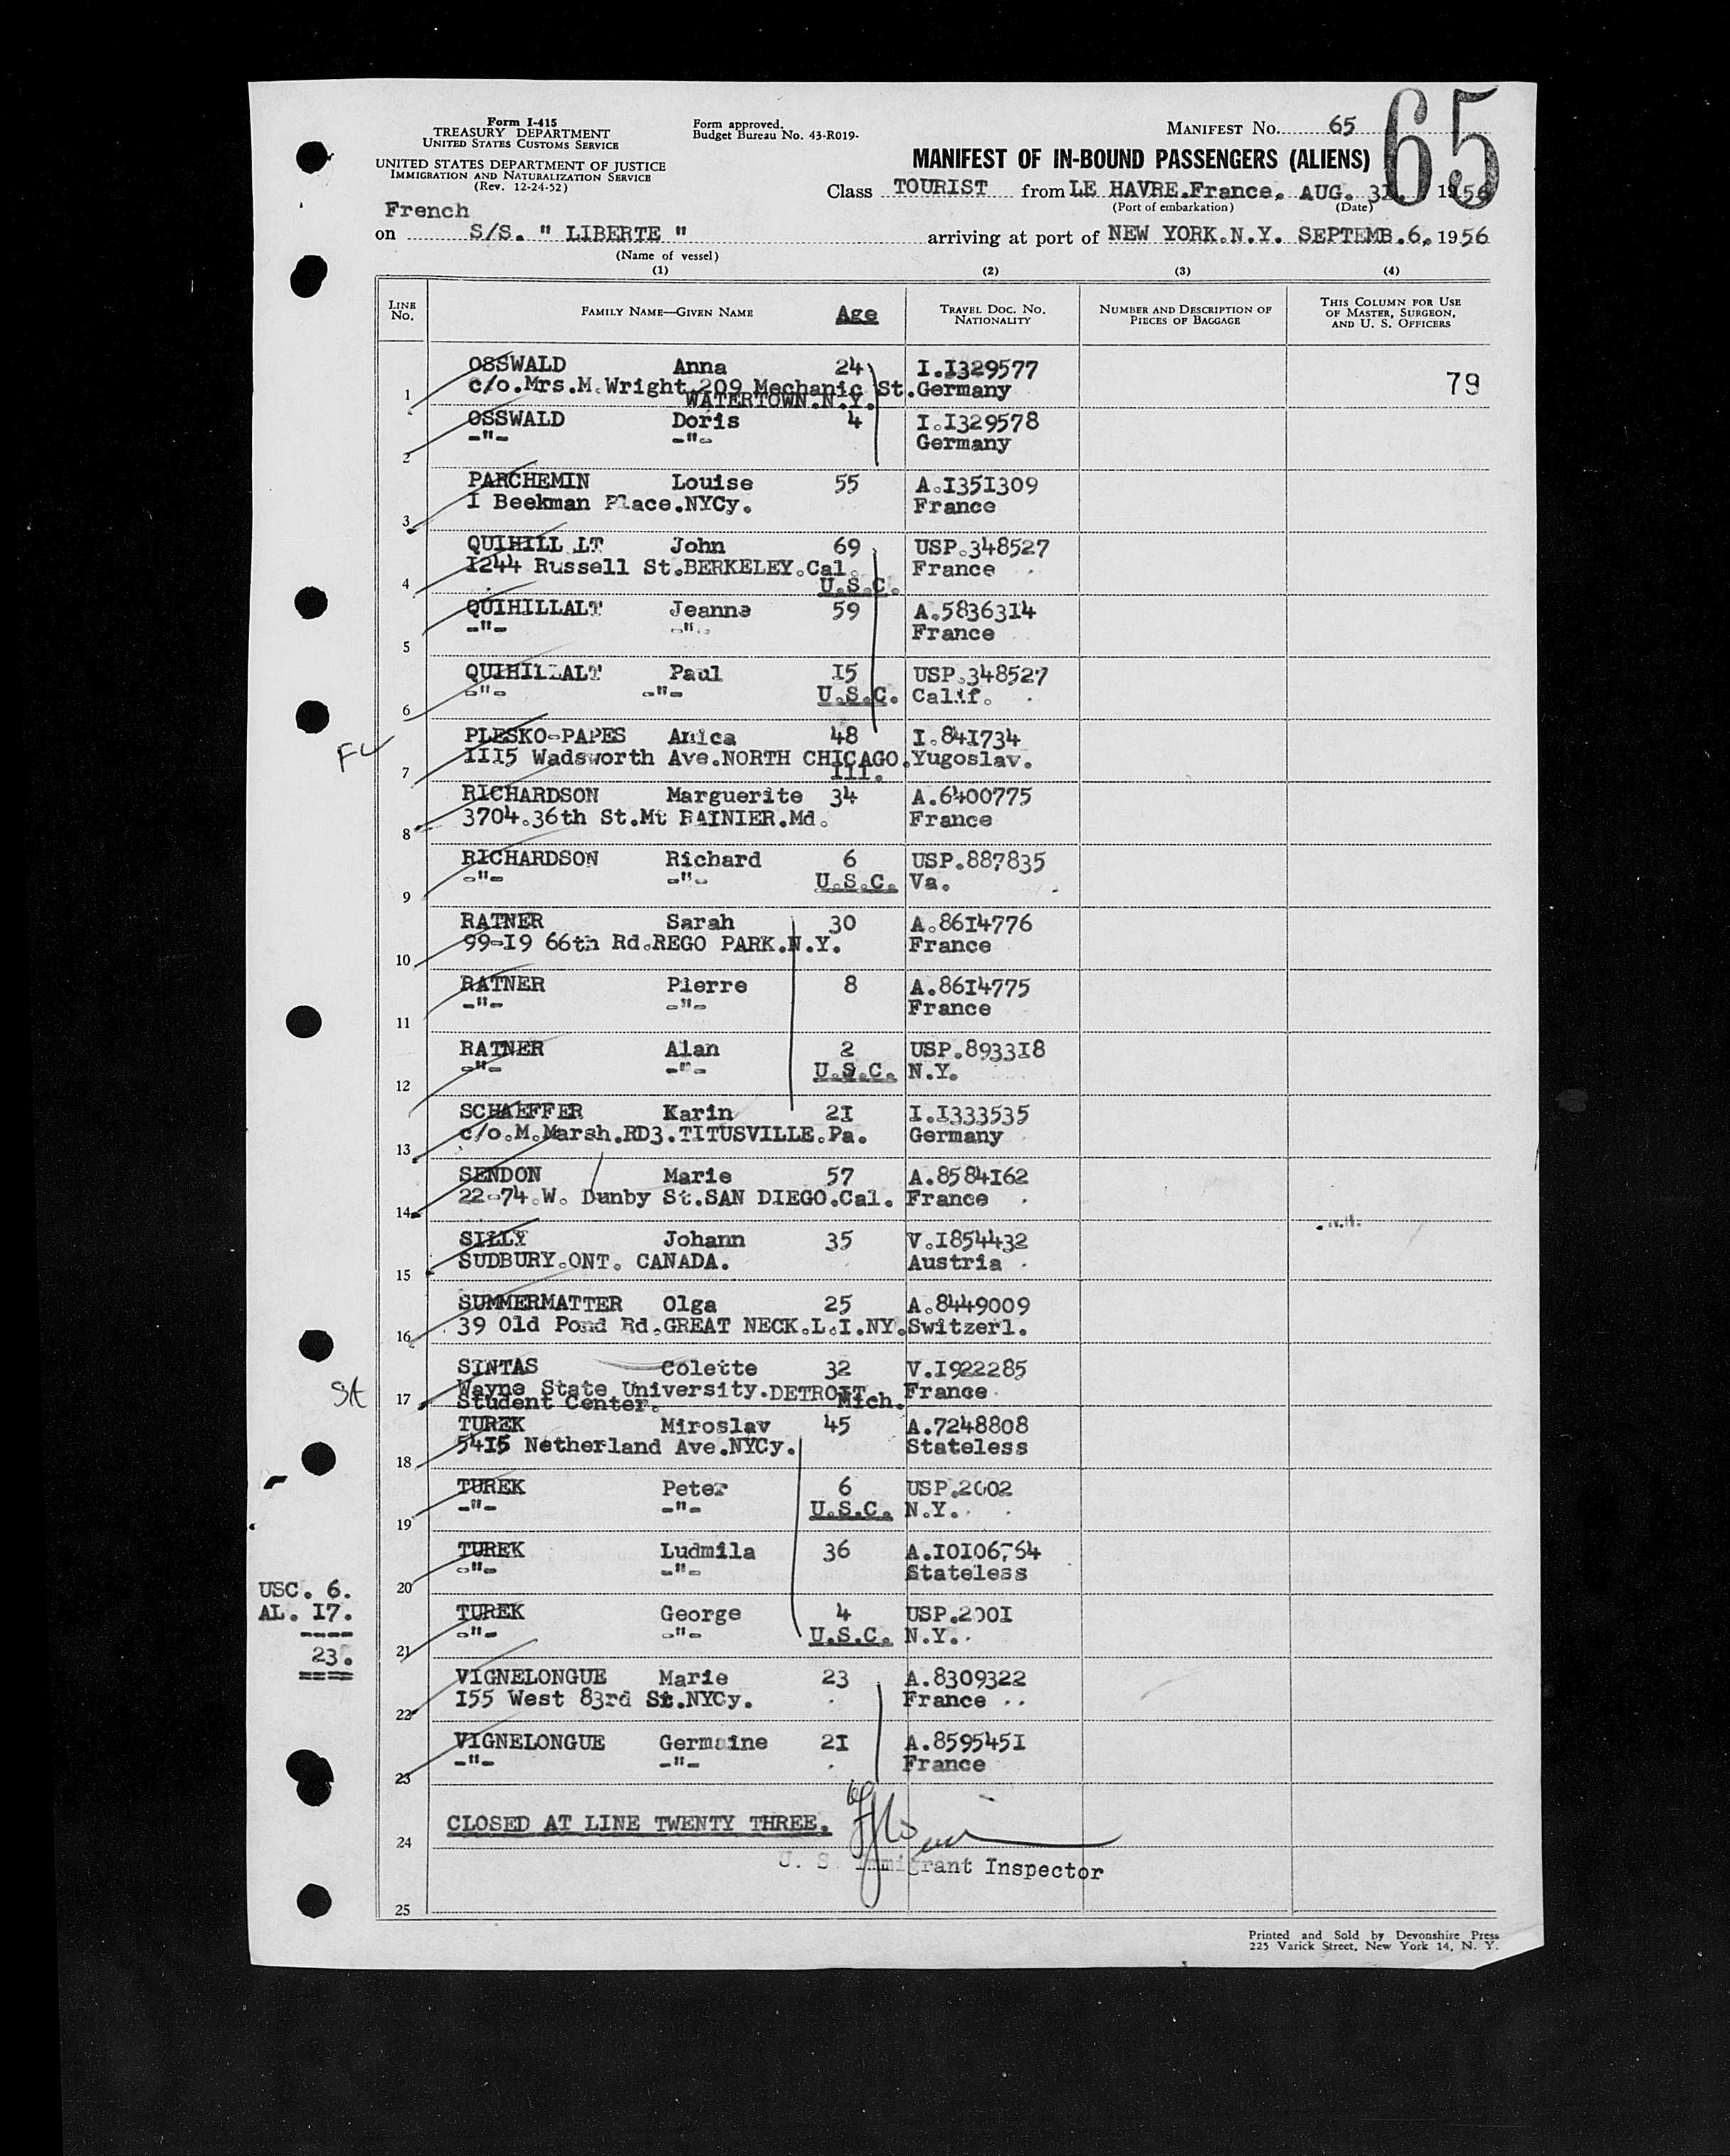 65
Form I-415
TREASURY DEPARTMENT
UNITED STATES CUSTOMS SERVICE
UNITED STATES DEPARTMENT OF JUSTICE
IMMIGRATION AND NATURALIZATION SERVICE
(Rev. 12-24-52)
Form approved.
Budget Bureau No. 43-R019-
MANIFEST NO. 65
MANIFEST OF IN-BOUND PASSENGERS (ALIENS)
Class TOURIST from LE HAVRE.France, AUG. 31. 1956
(Port of embarkation) (Date)
French
on S/S. " LIBERTE " arriving at port of NEW YORK.N.Y. SEPTEMB.6, 1956
(Name of vessel)
(1) (2) (3) (4)
LINE NO. FAMILY NAME—GIVEN NAME Age TRAVEL DOC. NO. NATIONALITY NUMBER AND DESCRIPTION OF PIECES OF BAGGAGE THIS COLUMN FOR USE OF MASTER, SURGEON, AND U. S. OFFICERS
OSSWALD Anna 24 I.I329577
1 c/o.Mrs.M.Wright 209 Mechanic St. Germany 79
WATERTOWN.N.Y.
OSSWALD Doris 4 I.I329578
2 -"- -"- Germany
PARCHEMIN Louise 55 A.I351309
3 I Beekman Place.NYCy. France
QUIHILL LT John 69 USP.348527
4 I244 Russell St.BERKELEY.Cal. France
U.S.C.
QUIHILLALT Jeanne 59 A.5836314
5 -"- -"- France
QUIHILLALT Paul I5 USP.348527
6 -"- -"- U.S.C. Calif.
PLESKO-PAPES Anica 48 I.84I734
7 III5 Wadsworth Ave.NORTH CHICAGO. Yugoslav.
Ill.
RICHARDSON Marguerite 34 A.6400775
8 3704.36th St.Mt RAINIER.Md. France
RICHARDSON Richard 6 USP.887835
9 -"- -"- U.S.C. Va.
RATNER Sarah 30 A.86I4776
10 99-I9 66th Rd.REGO PARK.N.Y. France
RATNER Pierre 8 A.86I4775
11 -"- -"- France
RATNER Alan 2 USP.8933I8
12 -"- -"- U.S.C. N.Y.
SCHAEFFER Karin 2I I.I333535
13 c/o.M.Marsh.RD3.TITUSVILLE.Pa. Germany
SENDON Marie 57 A.8584I62
14 22-74.W. Dunby St.SAN DIEGO.Cal. France
SILLY Johann 35 V.I854432
15 SUDBURY.ONT. CANADA. Austria
SUMMERMATTER Olga 25 A.8449009
16 39 Old Pond Rd.GREAT NECK.L.I.NY. Switzerl.
SINTAS Colette 32 V.I922285
St 17 Wayne State University.DETROIT France
Student Center. Mich.
TUREK Miroslav 45 A.7248808
18 54I5 Netherland Ave.NYCy. Stateless
TUREK Peter 6 USP.2002
19 -"- -"- U.S.C. N.Y.
TUREK Ludmila 36 A.I0I06754
20 -"- -"- Stateless
TUREK George 4 USP.200I
21 -"- -"- U.S.C. N.Y.
USC. 6.
AL. I7.
----
23.
====
VIGNELONGUE Marie 23 A.8309322
22 I55 West 83rd St.NYCy. France
VIGNELONGUE Germaine 2I A.859545I
23 -"- -"- France
24 CLOSED AT LINE TWENTY THREE.
U. S. Immigrant Inspector
25
Printed and Sold by Devonshire Press
225 Varick Street, New York 14, N. Y.